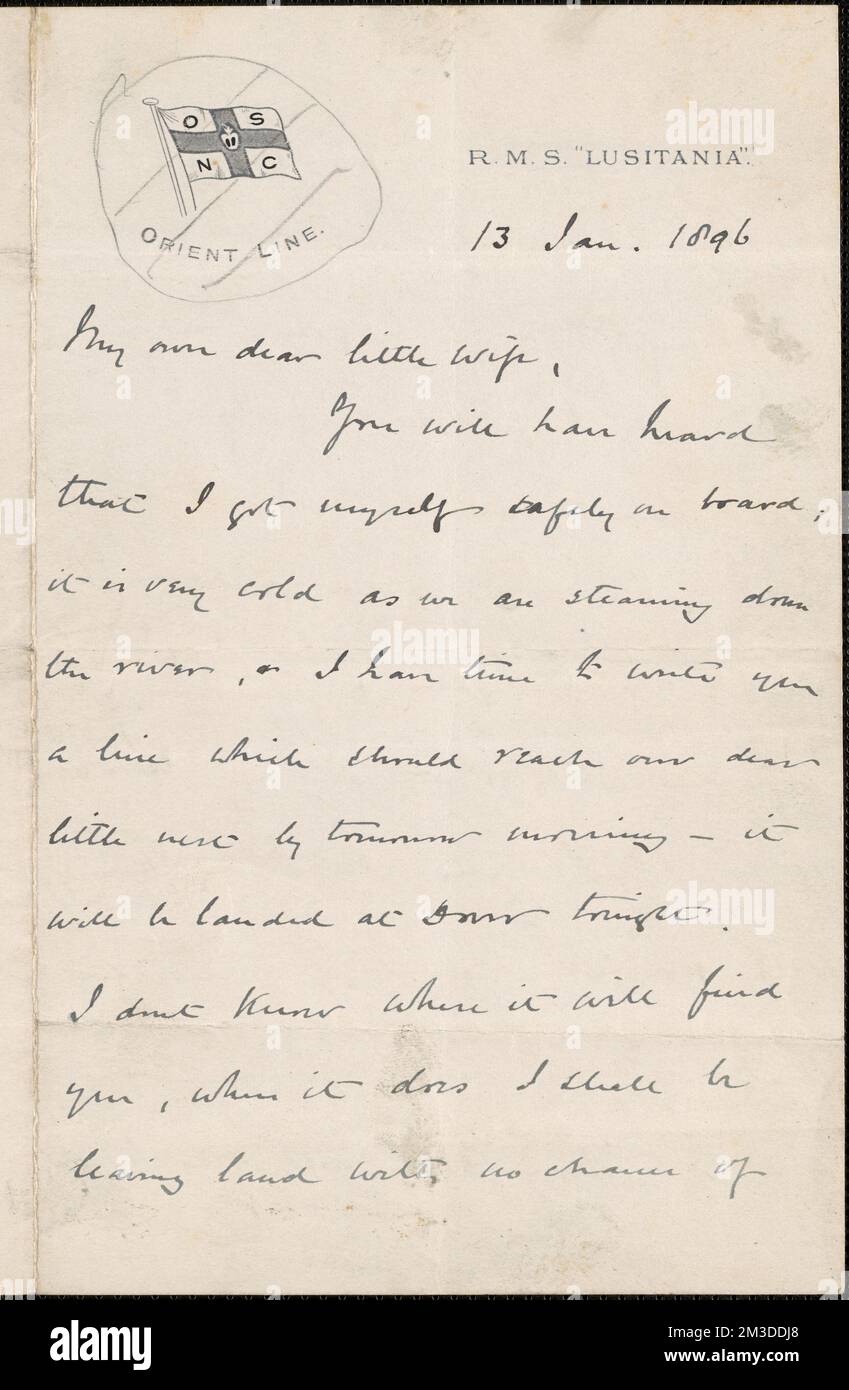 O S
N C
ORIENT LINE.
R. M. S. "LUSITANIA".
13 Jan. 1896
My own dear little wife,
You will have heard
that I got myself safely on board,
it is very cold as we are steaming down
the river, I have time to write you
a line which should reach our dear
little nest by tomorrow morning – it
will be landed at Dover tonight.
I dont know where it will find
you, when it does I shall be
leaving land with no chance of
alamy
Image ID: 2M3DDJ8
www.alamy.com